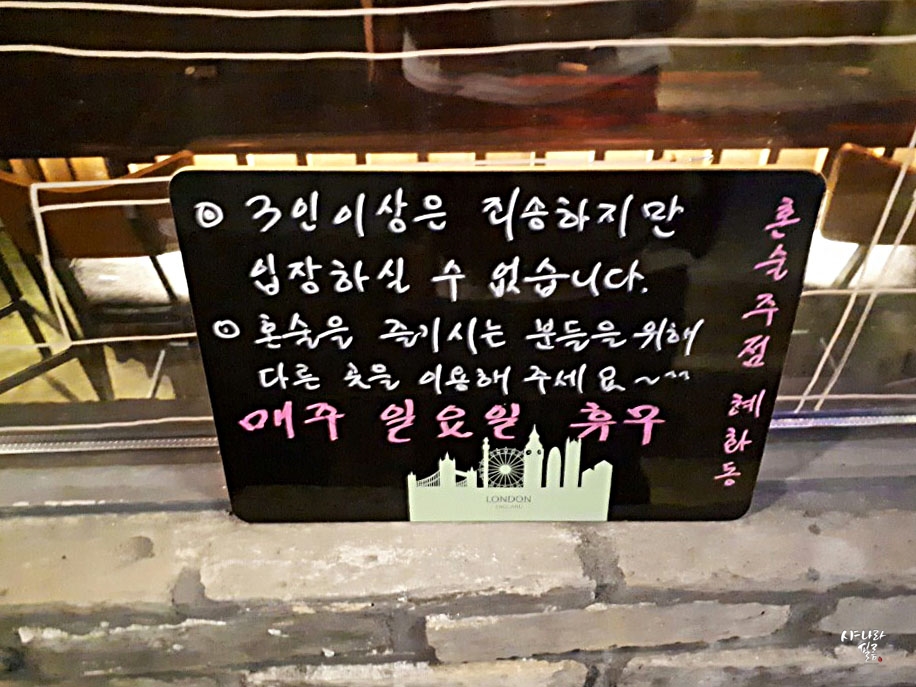 ⊙ 3인이상은 죄송하지만
입장하실 수 없습니다.
⊙ 혼술을 즐기시는 분들을 위해
다른 곳을 이용해 주세요~^^
매주 일요일 휴무
혼술주점 혜화동
LONDON
ENGLAND